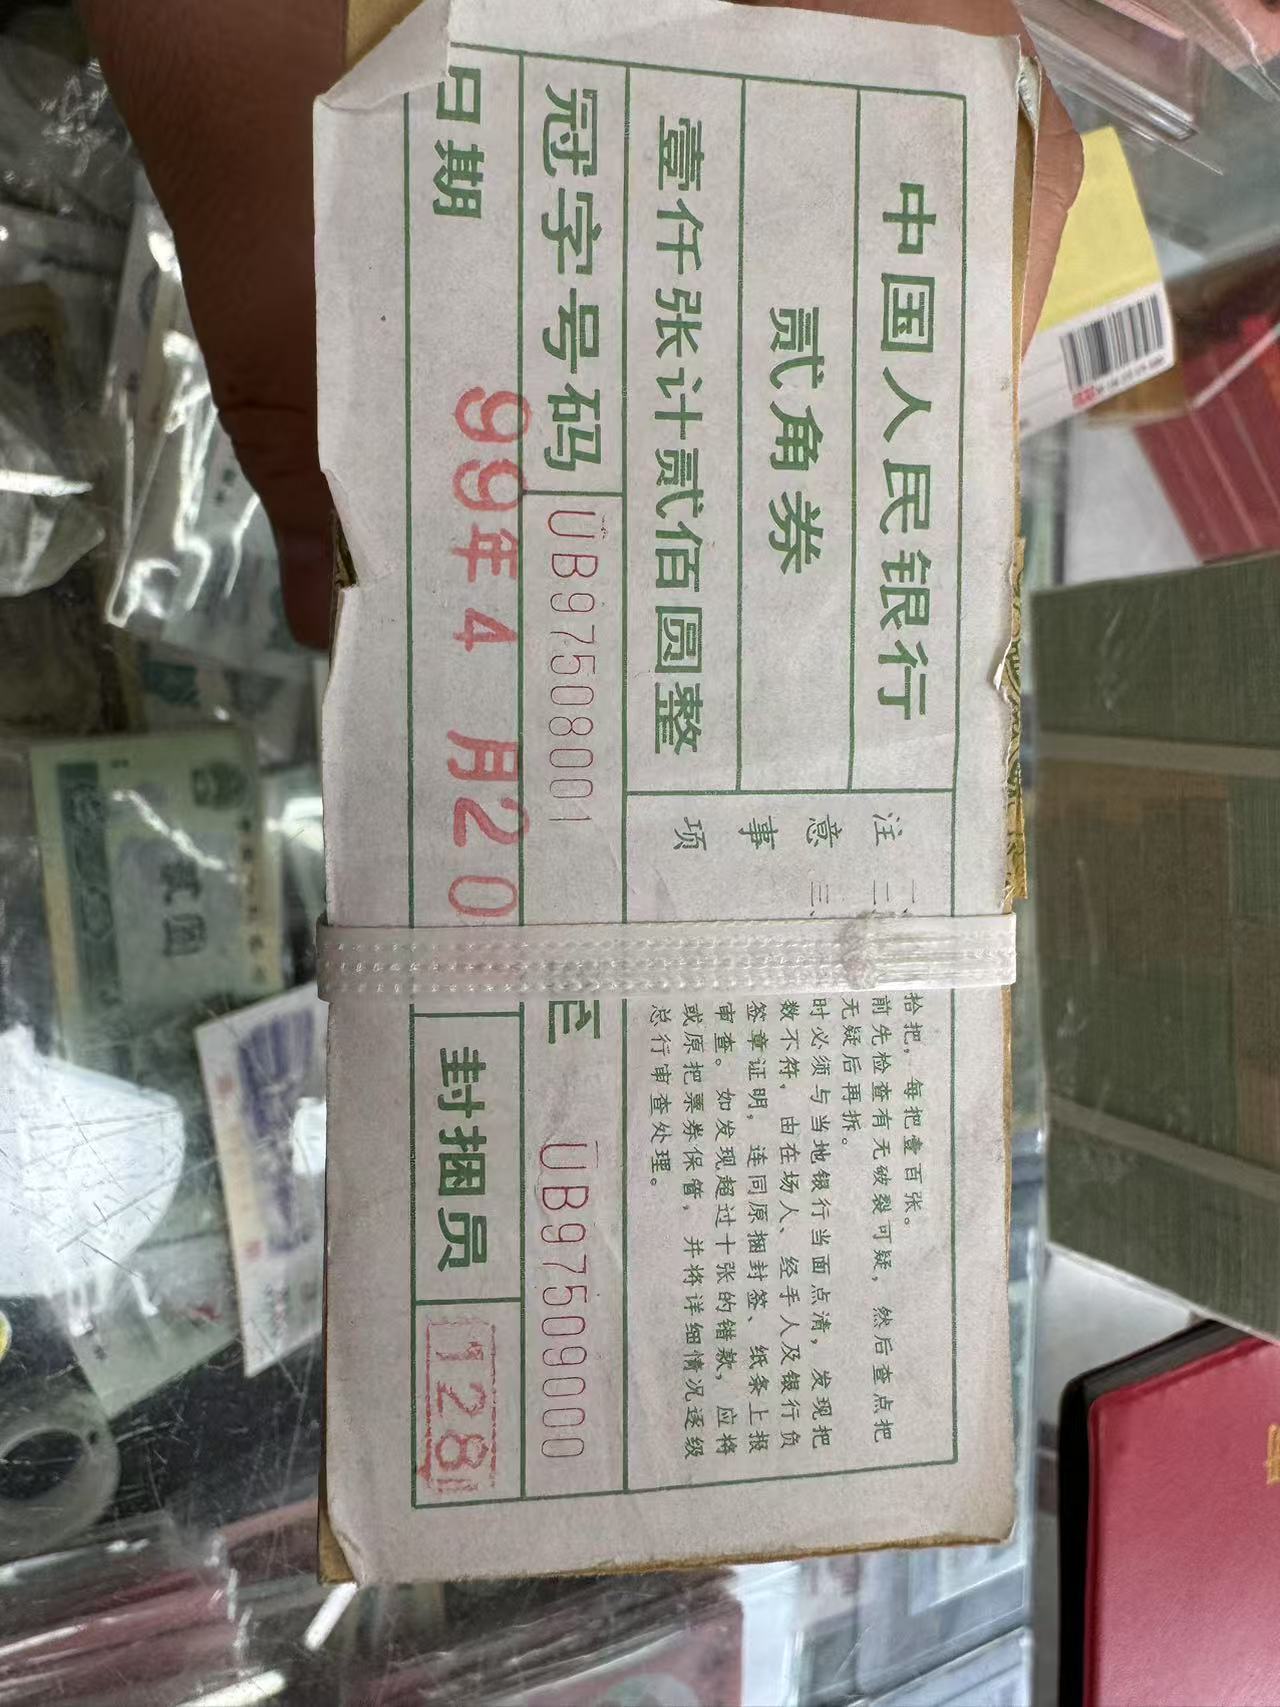 中国人民银行
贰角券
壹仟张计贰佰圆整
注意事项
一、
拾把，每把壹百张。
二、
前先检查有无破裂可疑，然后查点把
无疑后再拆。
三、
时必须与当地银行当面点清，发现把
数不符，由在场人、经手人及银行负
签章证明，连同原捆封签、纸条上报
审查。如发现超过十张的错款，应将
或原把票券保管，并将详细情况逐级
总行审查处理。
冠字号码 UB97508001 UB97509000
日期 99年4月20 封捆员 128
贰圆